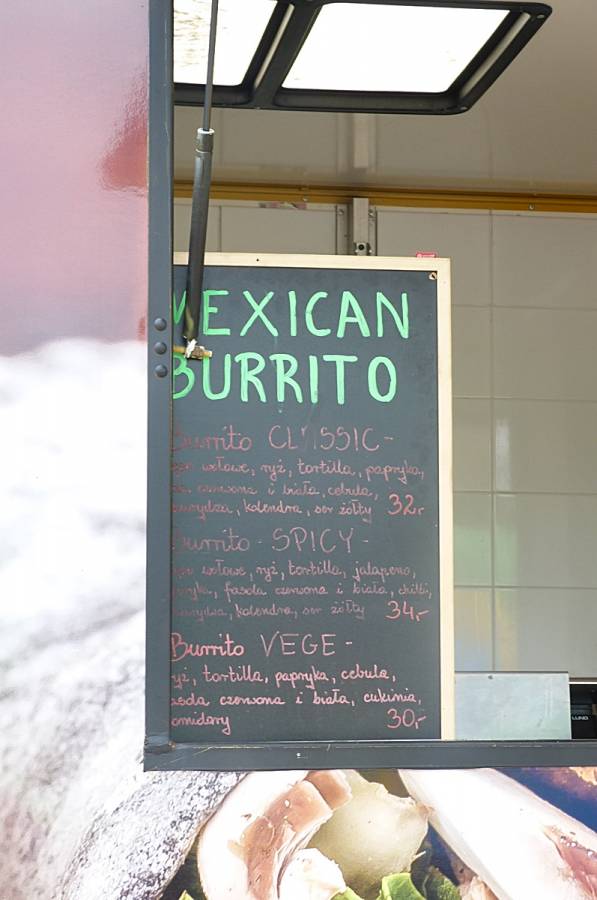 MEXICAN
BURRITO
Burrito CLASSIC -
wołowe, ryż, tortilla, papryka,
czerwona i biała, cebula,
kolendra, ser żółty 32,-
Burrito - SPICY -
wołowe, ryż, tortilla, jalapeno,
fasola czerwona i biała, chilli,
kolendra, ser żółty 34,-
Burrito VEGE -
ryż, tortilla, papryka, cebula,
czerwona i biała, cukinia,
30,-